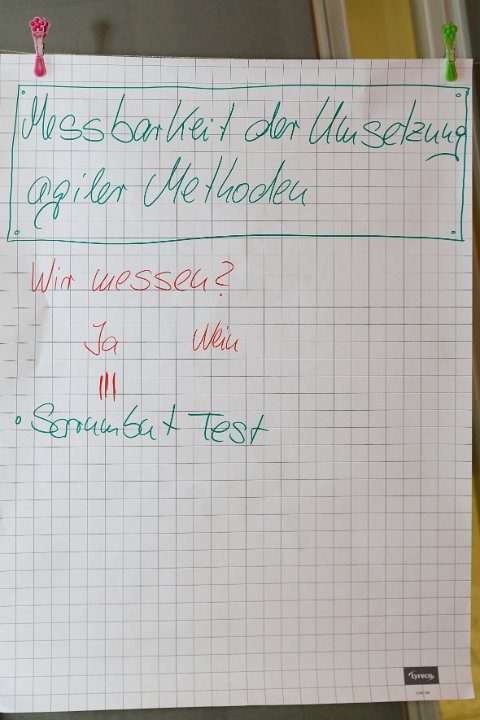 Messbarkeit der Umsetzung
agiler Methoden
Wir messen?
Ja Nein
III
• Scrumbut Test
Lyreco